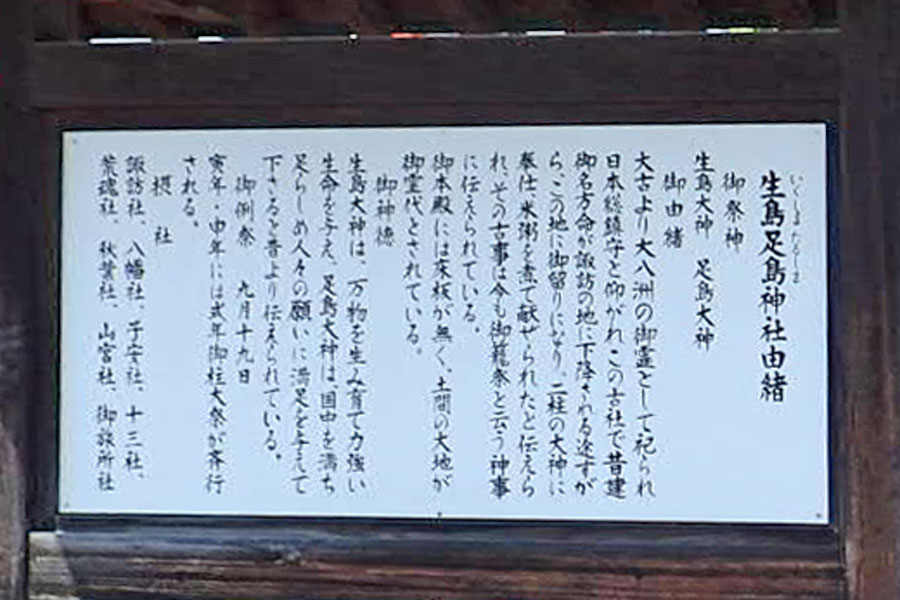 生島足島神社由緒
いくしまたるしま
御祭神
生島大神 足島大神
御由緒
太古より大八洲の御霊として祀られ
日本総鎮守と仰がれこの古社で昔建
御名方命が諏訪の地に下降される途すが
ら、この地に御留りになり、二柱の大神に
奉仕し米粥を煮て献ぜられたと伝えら
れ、その古事は今も御籠祭と云う神事
に伝えられている。
御本殿には床板が無く、土間の大地が
御霊代とされている。
御神徳
生島大神は、万物を生み育て力強い
生命を与え、足島大神は、国中を満ち
足らしめ人々の願いに満足を与えて
下さると昔より伝えられている。
御例祭 九月十九日
寅年・申年には式年御柱大祭が斉行
される。
摂社
諏訪社、八幡社、子安社、十三社、
荒魂社、秋葉社、山宮社、御旅所社